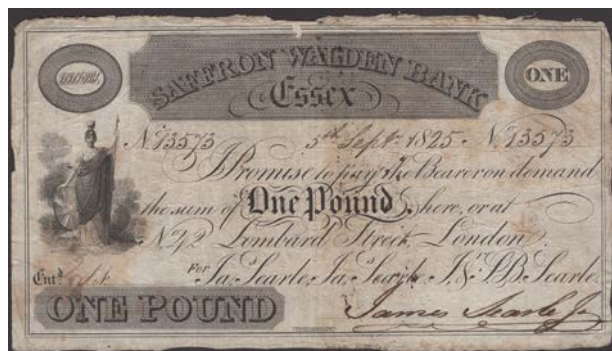 SAFFRON WALDEN BANK
ONE
Essex
No. 13573 5th Sept. 1825 No. 13573
I Promise to pay the Bearer on demand
the sum of One Pound, here, or at
No. 42 Lombard Street, London.
Entd.
For Ja. Searle, Ja. Searle Jr. & P.B. Searle.
ONE POUND
James Searle Jr